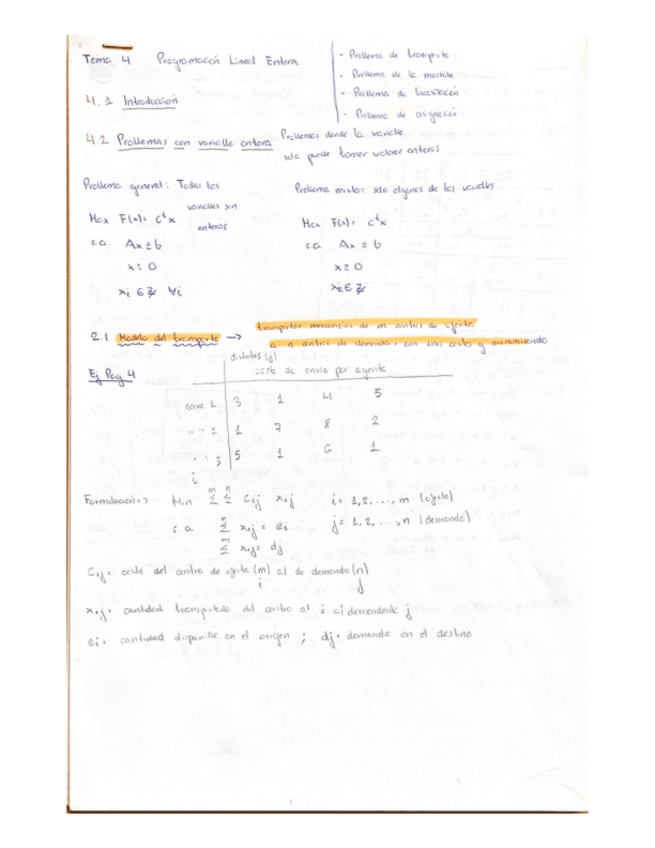 Tema 4 Programación Lineal Entera
- Problema de transporte
- Problema de la mochila
- Problema de localización
- Problema de asignación
4.1 Introducción
4.2 Problemas con variable entera
Problemas donde la variable
solo puede tomar valores enteros
Problema general: Todas las
variables son
enteras
Max F(x) = cᵗx
s.a. Ax ≤ b
x ≥ 0
xi ∈ Z ∀i
Problema mixto: solo algunas de las variables
Max F(x) = cᵗx
s.a. Ax ≤ b
x ≥ 0
xk ∈ Z
2.1 Modelo del transporte →
transportar mercancías de m centros de oferta
a n centros de demanda, con unos costes y minimizando
distritos (j)
Ej Pag 4
coste de envío por agente
nave 1 3 1 4 5
" " 2 1 7 8 2
" " 3 5 1 6 1
i
Formulación → Min m Σ n Σ Cij xij i = 1,2,..., m (oferta)
s.a. n Σ xij = ei j = 1,2,...,n (demanda)
m Σ xij = dj
Cij = coste del centro de oferta (m) al de demanda (n)
i j
xij = cantidad transportada del centro al i al demandante j
ei = cantidad disponible en el origen ; dj = demanda en el destino